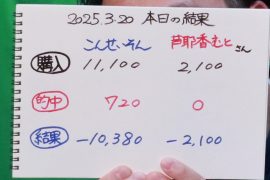 2025.3.20 本日の結果
こんせいさん 芦耶香むとさん
購入 11,100 2,100
的中 720 0
結果 -10,380 -2,100